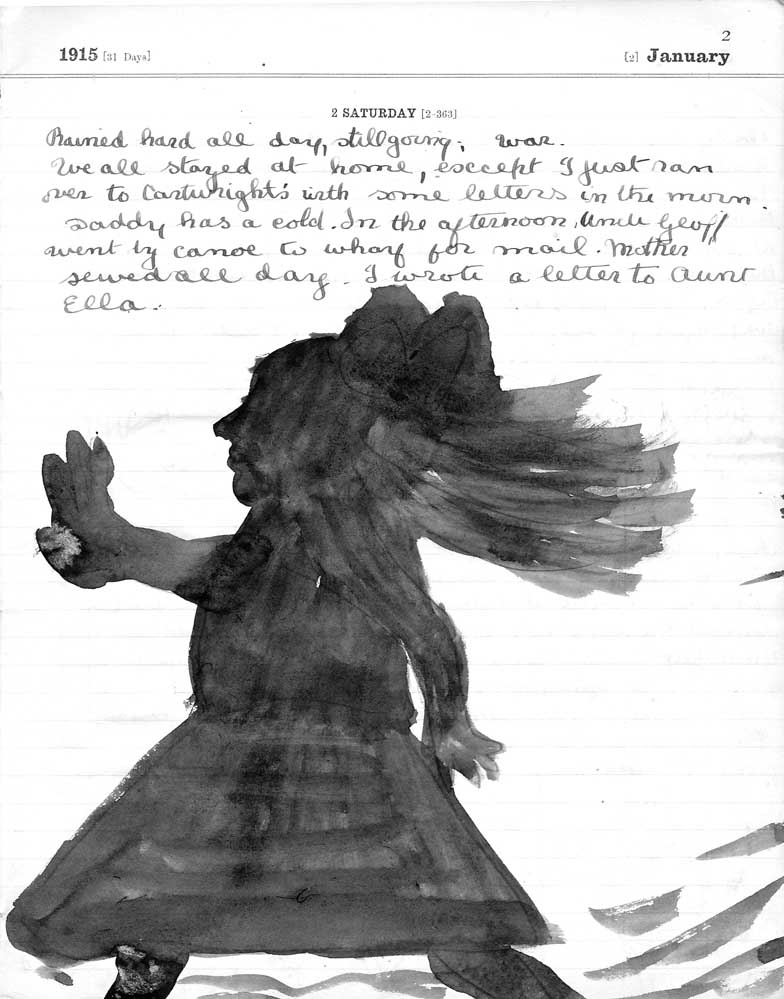 2
1915 [31 Days] [2] January
2 SATURDAY [2-363]
Rained hard all day, still going; war.
We all stayed at home, except I just ran
over to Cartwright's with some letters in the morn.
Daddy has a cold. In the afternoon, Uncle Geoff
went by canoe to wharf for mail. Mother
sewed all day. I wrote a letter to Aunt
Ella.